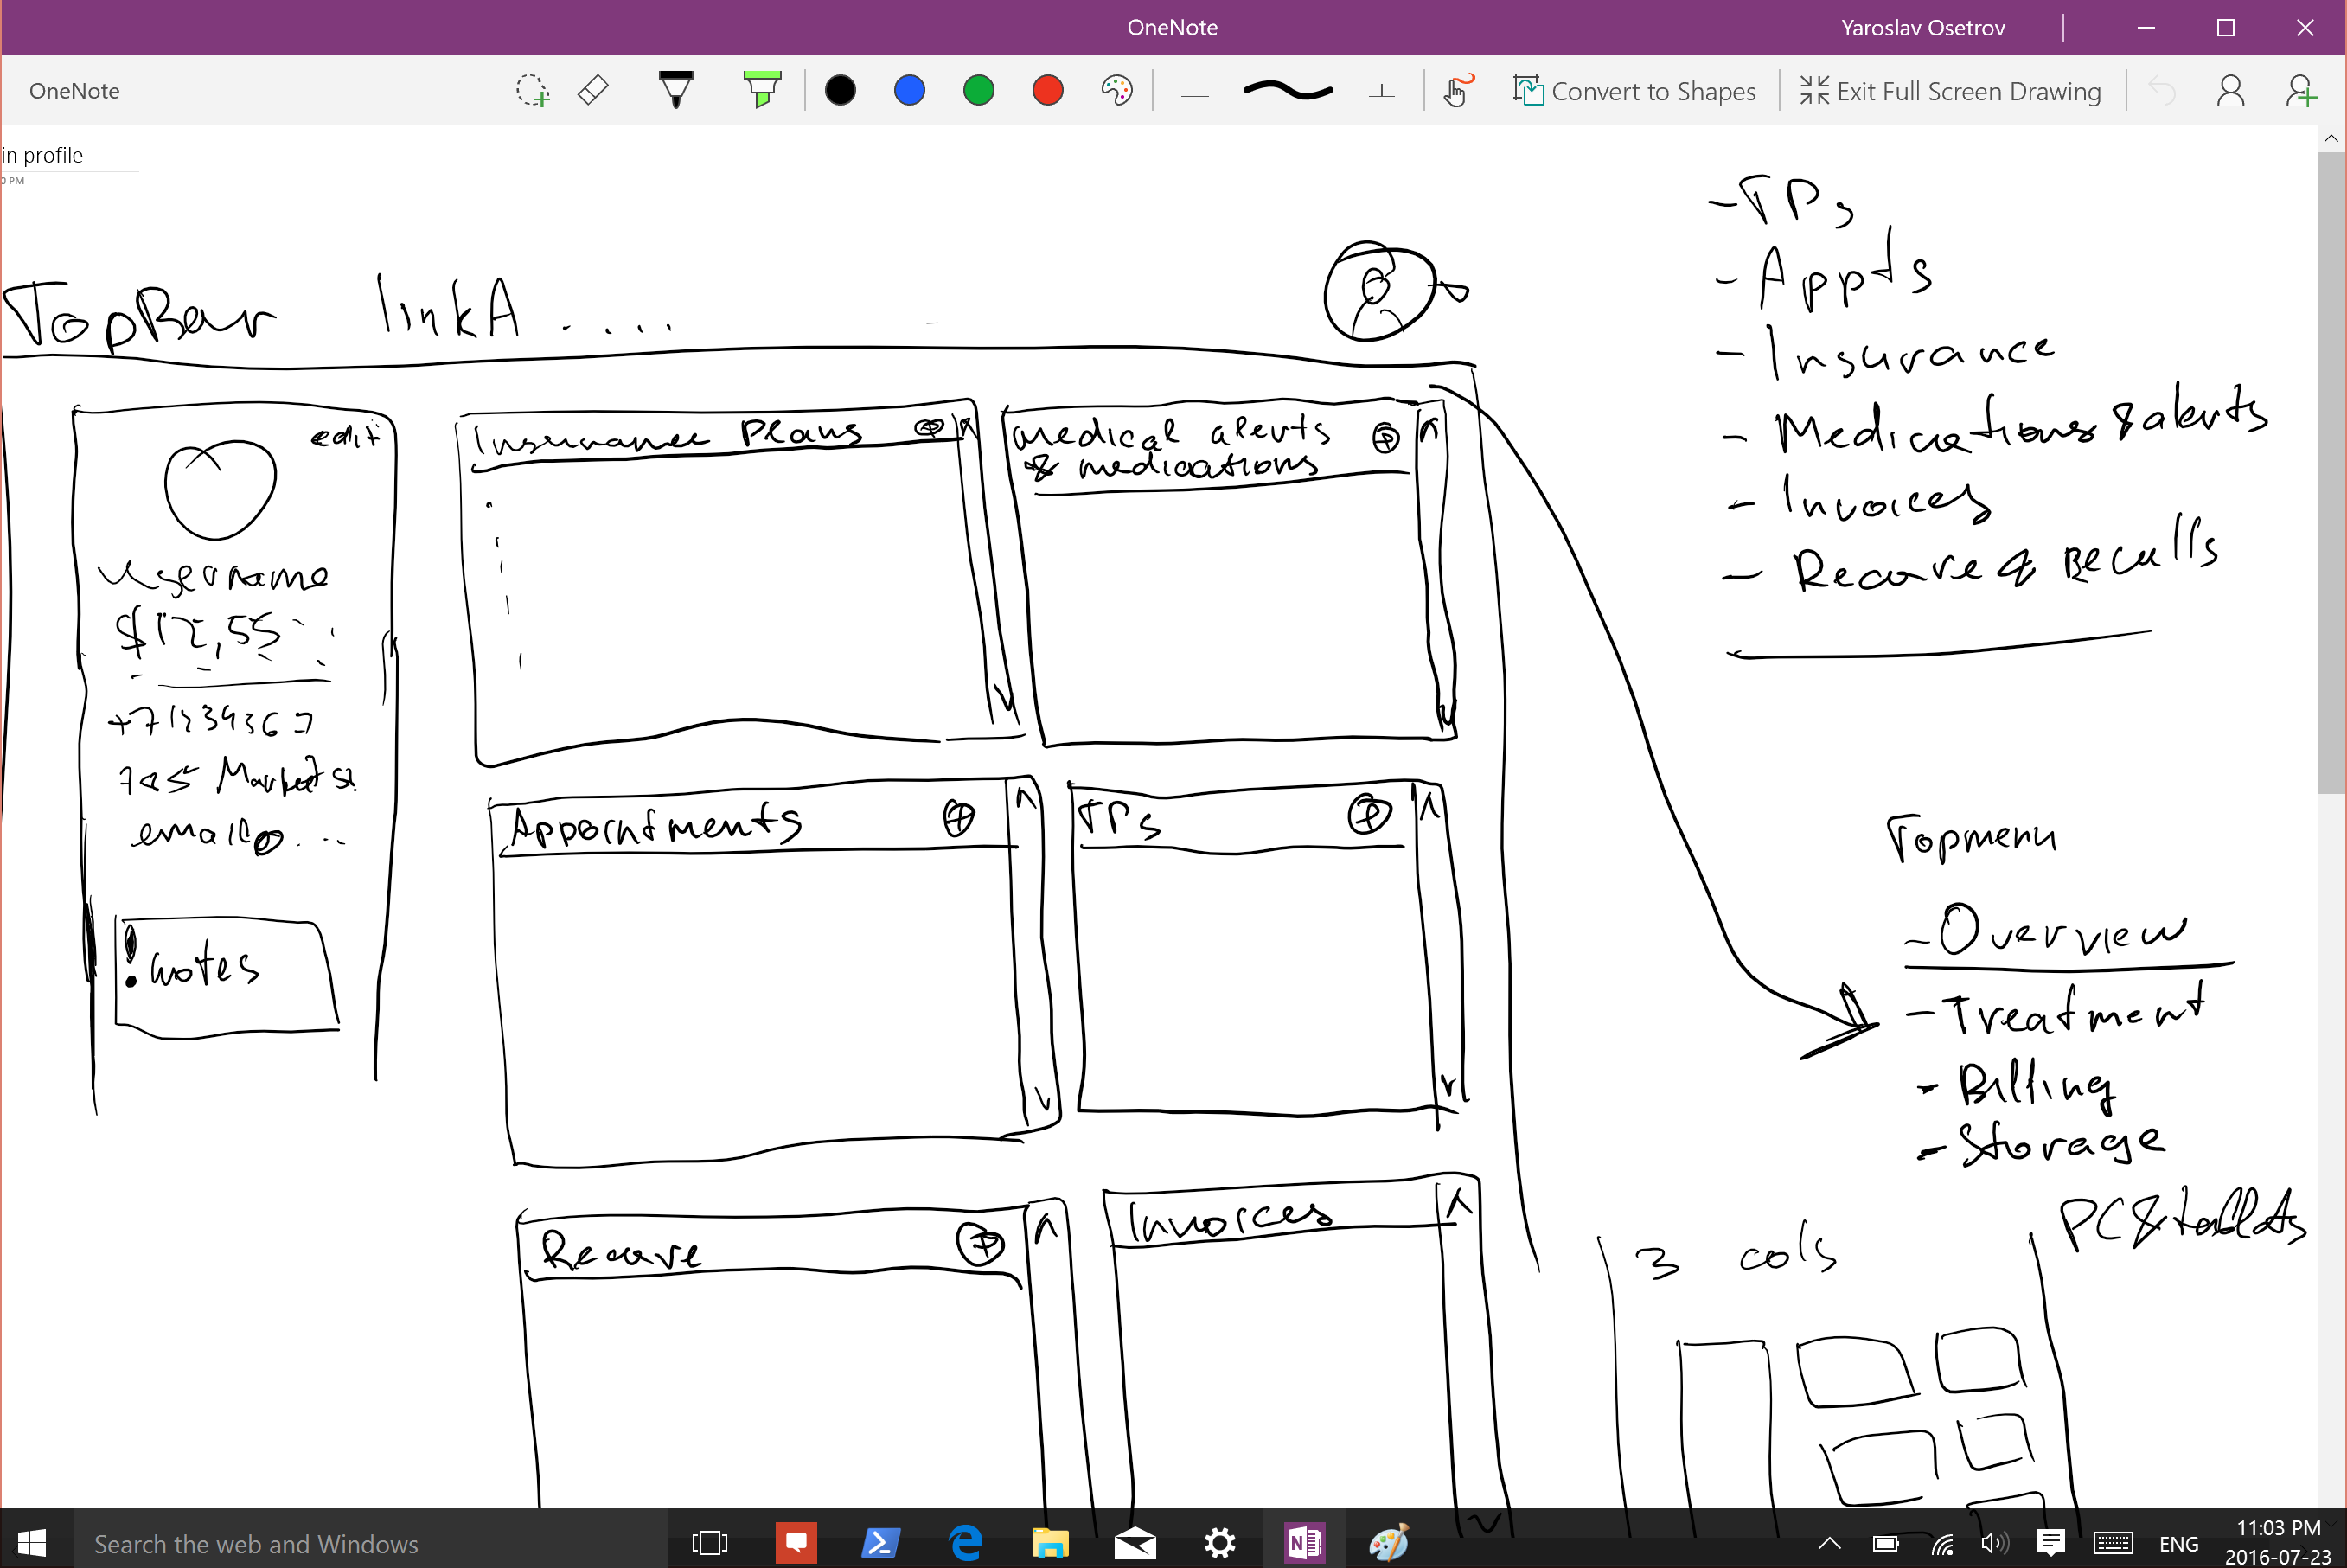 OneNote
Yaroslav Osetrov
OneNote
Convert to Shapes
Exit Full Screen Drawing
in profile
0 PM
TopBar linkA ....
edit
Username
$12,55
+7
Market St.
email@...
! notes
Insurance Plans
medical alerts
& medications
Appointments
TPs
Recare
Invoices
- TPs
- Appts
- Insurance
- Medications & alerts
- Invoices
- Recare & Recalls
Topmenu
- Overview
- Treatment
- Billing
- Storage
3 cols
PC & tablets
Search the web and Windows
ENG
11:03 PM
2016-07-23